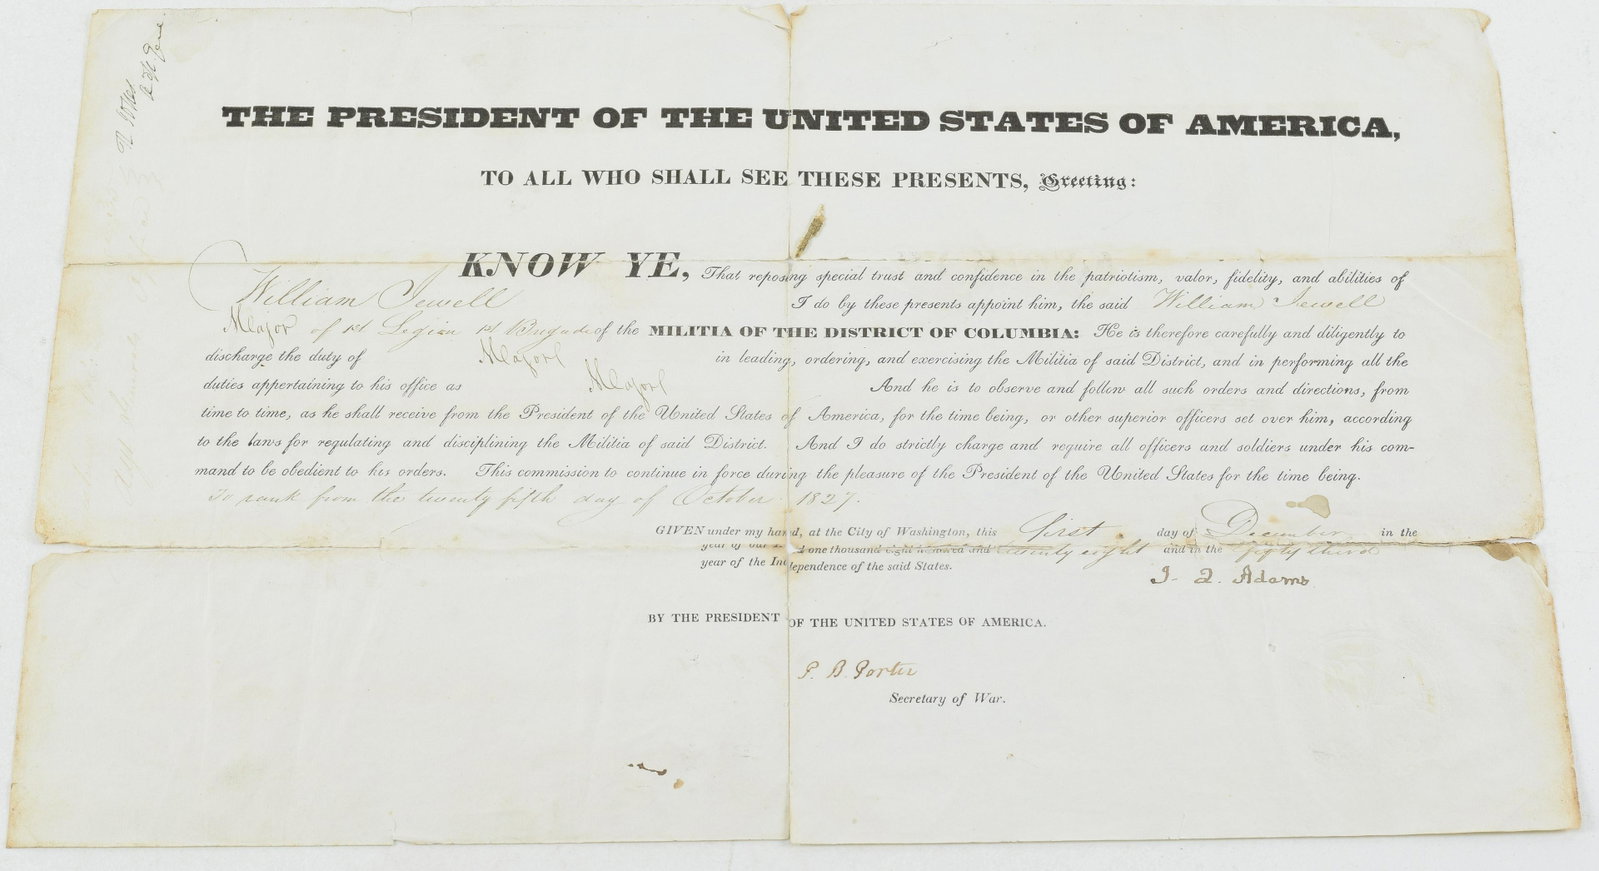 THE PRESIDENT OF THE UNITED STATES OF AMERICA,
TO ALL WHO SHALL SEE THESE PRESENTS, Greeting:
KNOW YE, That reposing special trust and confidence in the patriotism, valor, fidelity, and abilities of
William Jewell I do by these presents appoint him, the said William Jewell
Major of 1st Legion 1st Brigade of the MILITIA OF THE DISTRICT OF COLUMBIA: He is therefore carefully and diligently to
discharge the duty of Major in leading, ordering, and exercising the Militia of said District, and in performing all the
duties appertaining to his office as Major And he is to observe and follow all such orders and directions, from
time to time, as he shall receive from the President of the United States of America, for the time being, or other superior officers set over him, according
to the laws for regulating and disciplining the Militia of said District. And I do strictly charge and require all officers and soldiers under his com-
mand to be obedient to his orders. This commission to continue in force during the pleasure of the President of the United States for the time being.
To rank from the twenty fifth day of October 1827.
GIVEN under my hand, at the City of Washington, this first day of December in the
year of our one thousand eight hundred and twenty eight and in the fifty third
year of the Independence of the said States.
J. Q. Adams
BY THE PRESIDENT OF THE UNITED STATES OF AMERICA.
P. B. Porter
Secretary of War.